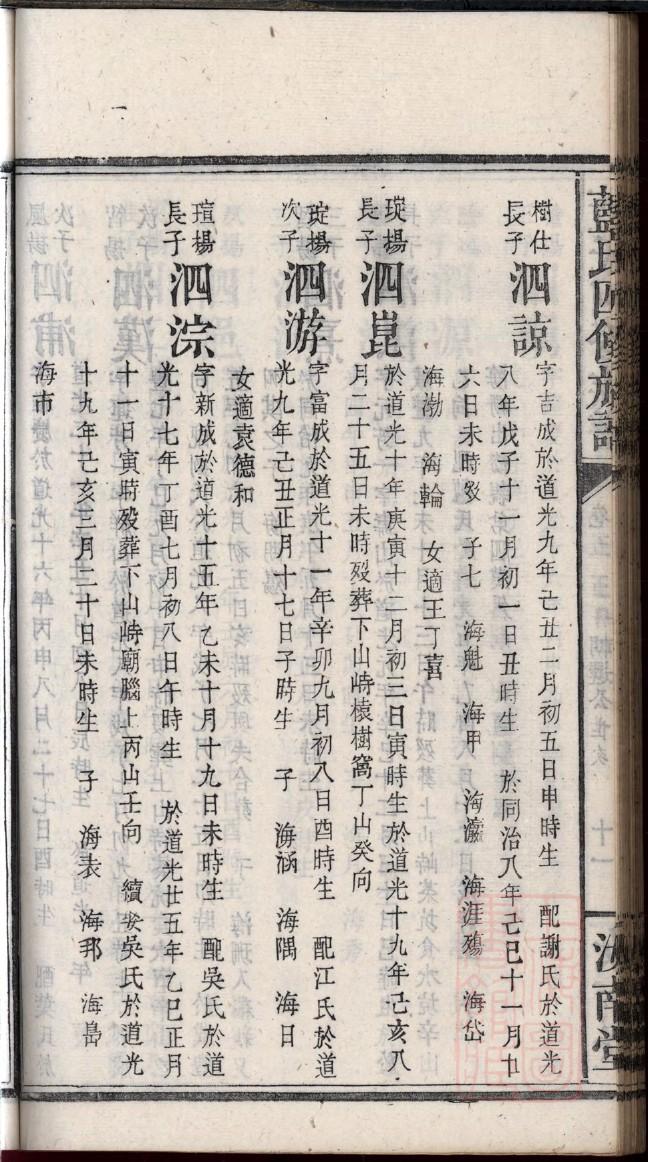 藍氏四修族譜
汝南堂
樹仕長子 泗諒 字吉成於道光九年己丑二月初五日申時生 配謝氏於道光
八年戊子十一月初一日丑時生 於同治八年己巳十一月
六日未時歿 子七 海魁 海甲 海瀛 海涯殤 海岱
海渤 海輪 女適王丁喜
琔楊長子 泗崑 於道光十年庚寅十二月初三日寅時生於道光十九年己亥八
月二十五日未時歿葬下山峙榬樹窩丁山癸向
琔楊次子 泗游 字富成於道光十一年辛卯九月初八日酉時生 配江氏於道
光九年己丑正月十七日子時生 子 海涵 海隅 海日
女適袁德和
瑄楊長子 泗淙 字新成於道光十五年乙未十月十九日未時生 配吳氏於道
光十七年丁酉七月初八日午時生 於道光廿五年乙巳正月
十一日寅時歿葬下山峙廟腦上丙山壬向 續娶吳氏於道光
十九年己亥三月二十日未時生 子 海表 海邦 海島
海市